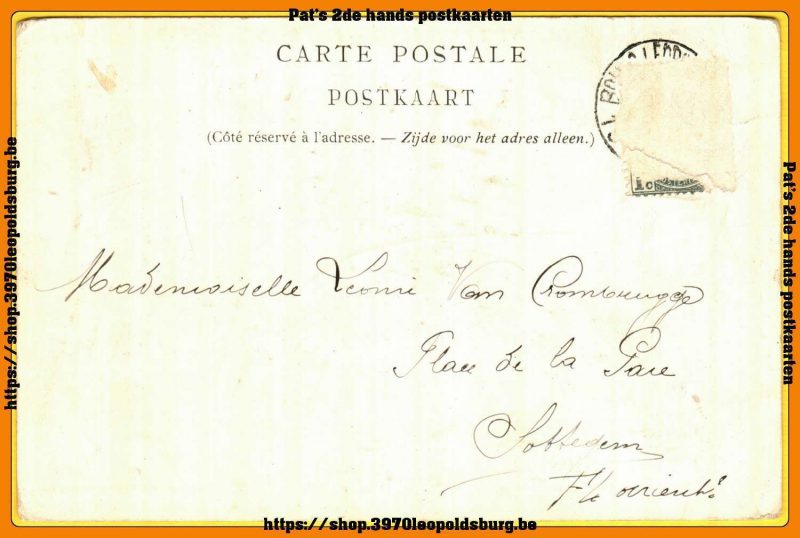 Pat's 2de hands postkaarten
CARTE POSTALE
POSTKAART
(Côté réservé à l'adresse. — Zijde voor het adres alleen.)
1c
https://shop.3970leopoldsburg.be
Pat's 2de hands postkaarten
Mademoiselle Léonie Van Crombrugge
Place de la Gare
Sottegem
https://shop.3970leopoldsburg.be